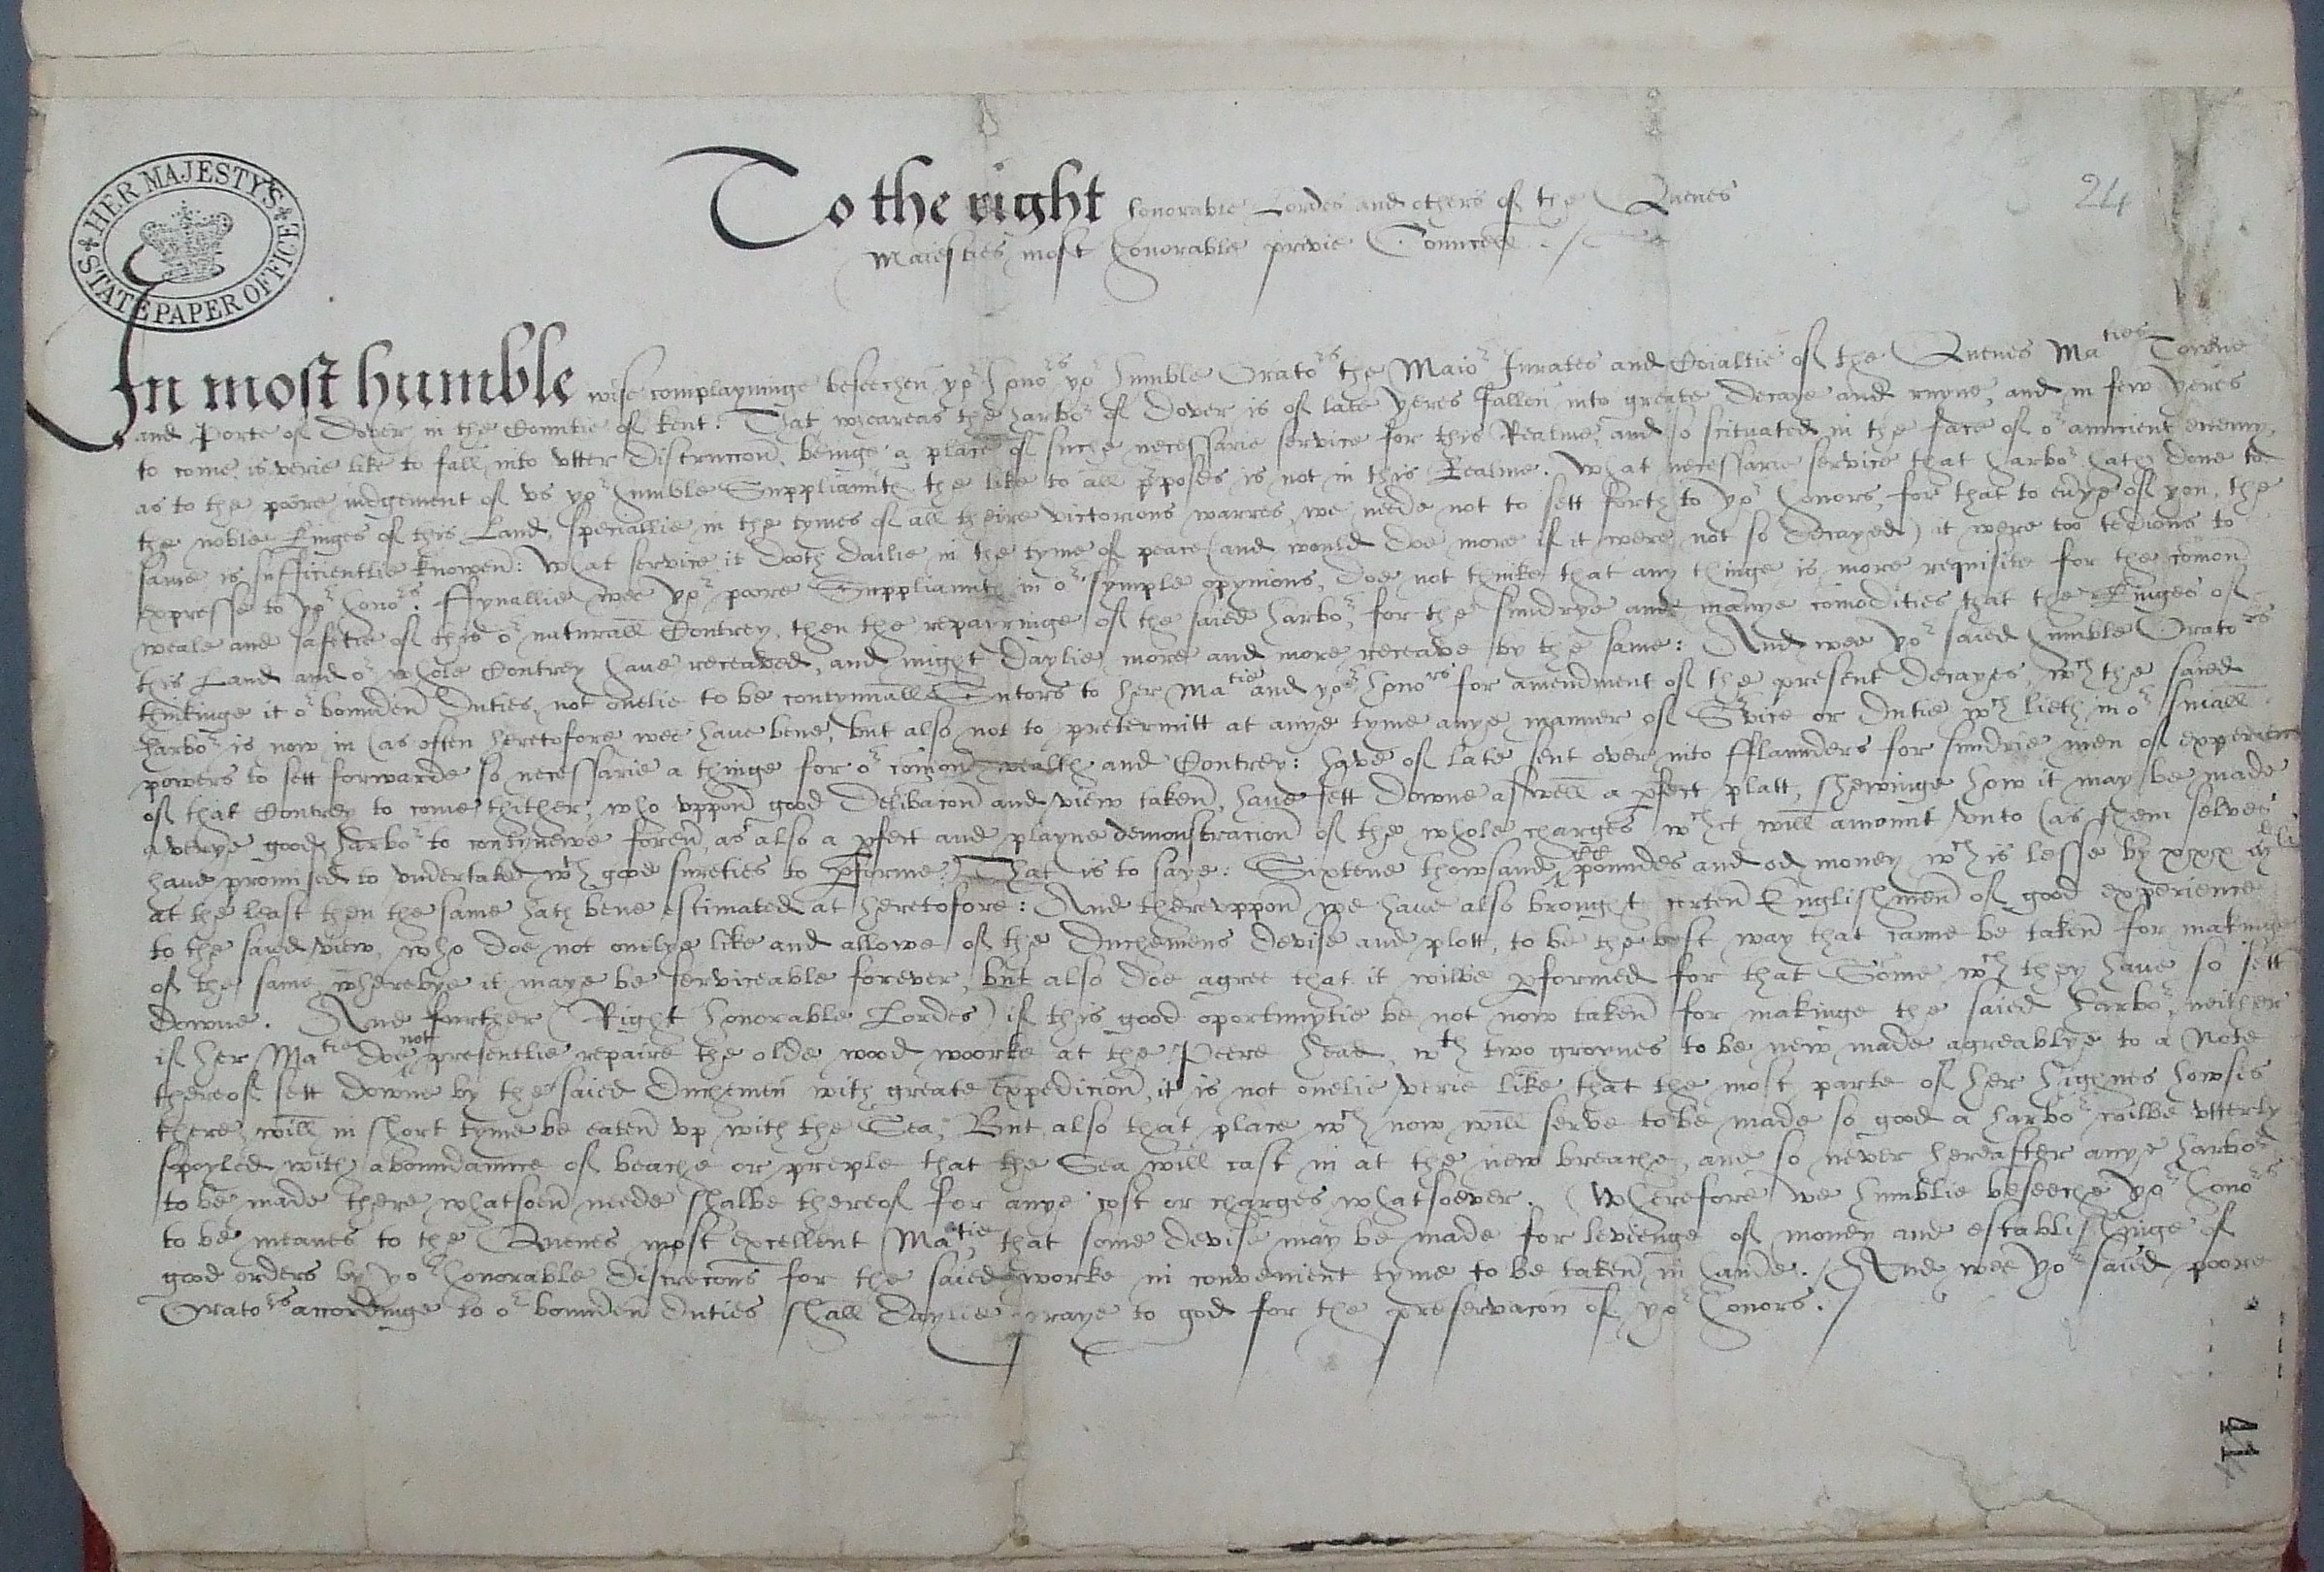 HER MAJESTY'S STATE PAPER OFFICE
24
To the right honorable Lordes and others of the Quenes
Maiesties most honorable privie Councell ./
In most humble wise complayninge beseechen yor honors yor humble Orators the Maior Jurates and Coialtie of the Quenes Maties Towne
and Porte of Dover in the Countie of Kent: That wheareas the harbor of Dover is of late yeres fallen into greate decaye and ruyne, and in few yeres
to come is verie like to fall into vtter distruccon, beinge a place of suche necessarie service for this Realme, and so scituated in the face of or auncient enemy,
as to the poore iudgement of vs yor humble Suppliaunts the like to all pposes is not in this Realme. What necessarie service that harbor hath done to
the noble Kinges of this Land, speciallie in the tymes of all theire victorious warres, we neede not to sett forth to yor honors, for that to euye of you, the
same is sufficientlie knowen: What service it doth dailie in the tyme of peace (and would doe more if it were not so decayed) it were too tedious to
expresse to yor honors. ffynallie wee yor poore Suppliaunts in or symple opynions, doe not thinke that any thinge is more requisite for the comon
weale and safetie of this or naturall Contrey, then the repayringe of the saied harbor, for the sundrye and manye comodities that the Kinges of
this Land and or whole Contrey haue receaved, and might daylie more and more receave by the same: And wee yor saied humble Orators
thinkinge it or bounden duties, not onelie to be contynuall Sutors to her Matie and yor honors for amendment of the present decayes, wch the saied
harbor is now in (as often heretofore wee haue bene, but also not to pretermitt at anye tyme anye manner of Svice or dutie wch lieth in or small
powers to sett forwarde so necessarie a thinge for or comon wealth and Contrey: have of late sent over into fflaunders for sundrie men of experience
of that Contrey to come thither, who vppon good delibacon and view taken, haue sett downe aswell a pfect platt, shewinge how it may be made
a verye good harbor to contynewe foreu, as also a pfect and playne demonstracion of the whole charges wch it will amount vnto (as them selves
haue promised to vndertake wth good sureties to pforme:) That is to saye: Sixtene thowsand poundes and od money wch is lesse by xxx mli
at the least then the same hath bene estimated at heretofore: And therevppon we haue also brought certen Englishmen of good experience
to the said view, who doe not onelye like and allowe of the Duchemens devise and plott, to be the best way that canne be taken for makinge
of the same, wherebye it maye be serviceable forever, but also doe agree that it wilbe pformed for that Some wch they haue so sett
downe. And further (Right honorable Lordes) if this good oportunytie be not now taken for makinge the saied harbor, neither
if her Matie doe not presentlie repaire the olde wood woorke at the Peere head, wth two groynes to be new made agreablye to a Note
thereof sett downe by the saied Duchemen with greate expedicion, it is not onelie verie like that the most parte of her highnes howses
there will in short tyme be eaten vp with the Sea, But also that place wch now will serve to be made so good a harbor wilbe vtterly
spoyled with aboundaunce of beache or preple that the Sea will cast in at the new breache, and so never hereafter anye harbor
to be made there whatsoeu neede shalbe thereof for anye cost or charges whatsoever. Wherefore we humblie beseeche yor honors
to be meanes to the Quenes most excellent Matie, that some devise may be made for levienge of money and establishinge of
good orders by yor honorable discrecons for the saied worke in convenient tyme to be taken in hande. / And wee yor saied poore
Orators accordinge to or bounden duties shall daylie praye to god for the preservacon of yor honors. /
44